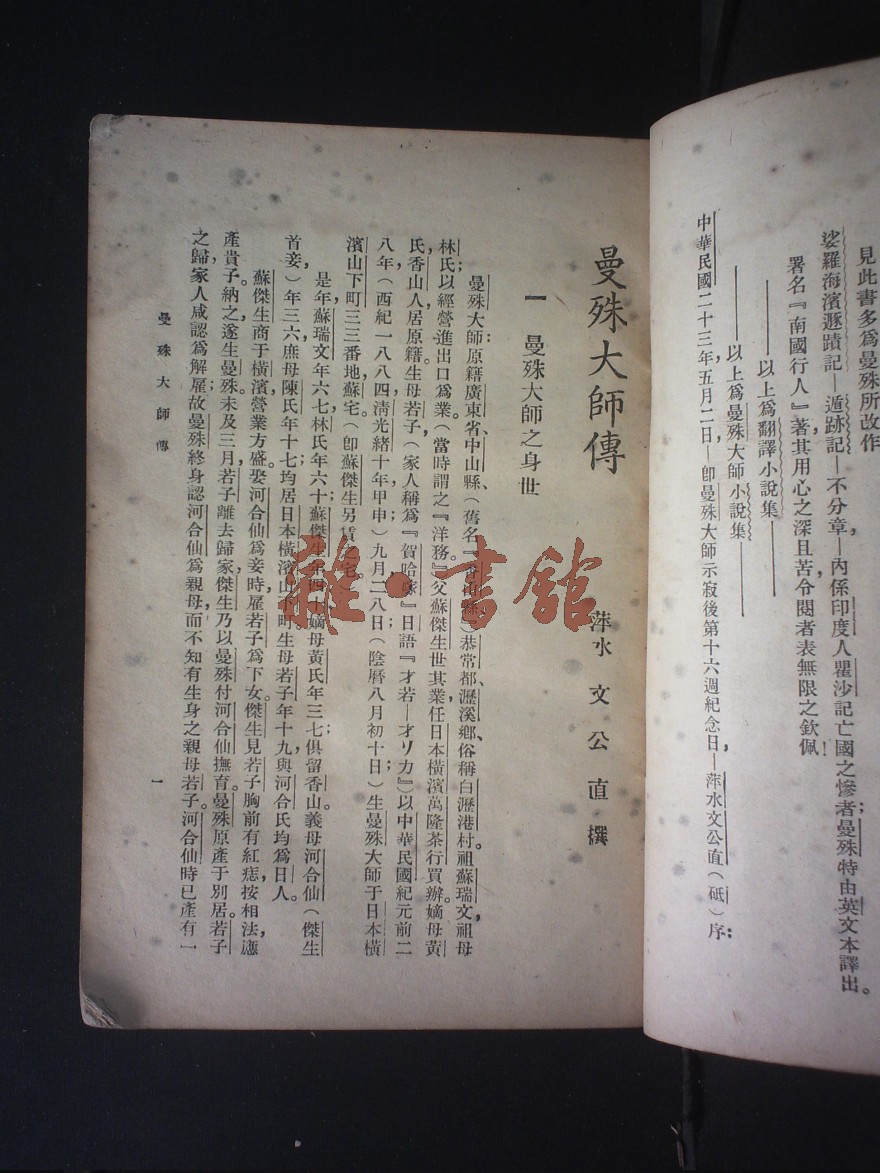 見此書多爲曼殊所改作
娑羅海濱遯蹟記—遁跡記—不分章—內係印度人瞿沙記亡國之慘者;曼殊特由英文本譯出。
署名『南國行人』著其用心之深且苦,令閱者表無限之欽佩!
————以上爲翻譯小說集————
————以上爲曼殊大師小說集————
中華民國二十三年五月二日—卽曼殊大師示寂後第十六週紀念日,—萍水文公直(砥)序;
曼殊大師傳
萍水 文公直 撰
一 曼殊大師之身世
曼殊大師:原籍廣東省、中山縣、(舊名『香山縣』)恭常都、瀝溪鄉、俗稱白瀝港村。祖蘇瑞文,祖母
林氏;以經營進出口爲業。(當時謂之『洋務。』)父蘇傑生世其業,任日本橫濱萬隆茶行買辦。嫡母黃
氏,香山人,居原籍。生母若子,(家人稱爲『賀哈嗲』日語『才若—才リカ』)以中華民國紀元前二
八年(西紀一八八四,淸光緒十年甲申;)九月二八日(陰曆八月初十日)生曼殊大師于日本橫
濱山下町三三番地蘇宅(卽蘇傑生另賃之宅。)
是年蘇瑞文年六七,林氏年六十;蘇傑生年四十,嫡母黃氏年三七,俱留香山。義母河合仙(傑生
首妾)年三六,庶母陳氏年十七,均居日本橫濱山下町。生母若子年十九,與河合氏均爲日人。
蘇傑生商于橫濱,營業方盛,娶河合仙爲妾時,雇若子爲下女。傑生見若子胸前有紅痣,按相法應
產貴子,納之,遂生曼殊。未及三月,若子離去歸家,傑生乃以曼殊付河合仙撫育。曼殊原產于別居,若子
之歸家人咸認爲解雇;故曼殊終身認河合仙爲親母,而不知有生身之親母若子。河合仙時已產有一
曼殊大師傳
一
雜·書館